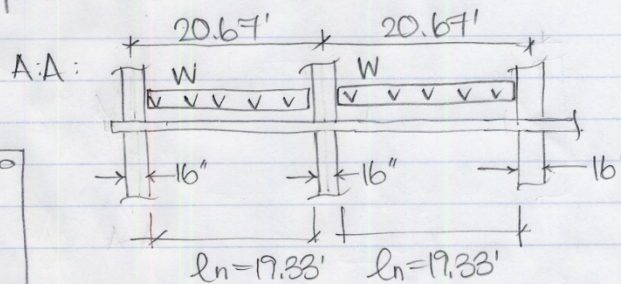 20.67' 20.67'
A:A:
W W
16" 16" 16
ln=19.33' ln=19.33'